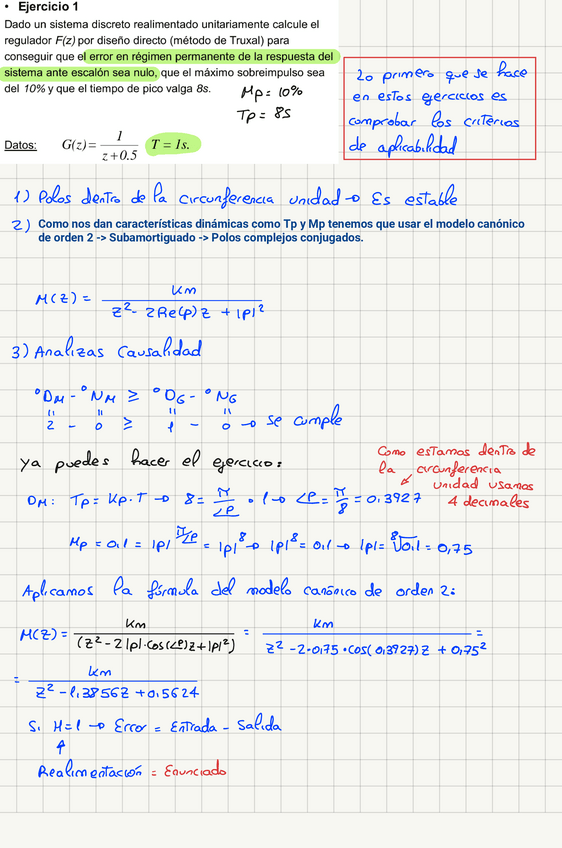 • Ejercicio 1
Dado un sistema discreto realimentado unitariamente calcule el
regulador F(z) por diseño directo (método de Truxal) para
conseguir que el error en régimen permanente de la respuesta del
sistema ante escalón sea nulo, que el máximo sobreimpulso sea
del 10% y que el tiempo de pico valga 8s.
Mp = 10%
Tp = 8s
Datos: G(z) = 1 / (z+0.5) T = 1s.
Lo primero que se hace
en estos ejercicios es
comprobar los criterios
de aplicabilidad
1) Polos dentro de la circunferencia unidad → Es estable
2) Como nos dan características dinámicas como Tp y Mp tenemos que usar el modelo canónico
de orden 2 -> Subamortiguado -> Polos complejos conjugados.
M(z) = Km / (z² - 2Re(p)z + |p|²)
3) Analizas Causalidad
°DM - °NM ≥ °DG - °NG
" " " "
2 - 0 ≥ 1 - 0 → se cumple
ya puedes hacer el ejercicio:
Como estamos dentro de
la circunferencia
unidad usamos
4 decimales
DM: Tp = Kp·T → 8 = π/∠p · 1 → ∠p = π/8 = 0,3927
Mp = 0,1 = |p|^(π/∠p) = |p|⁸ → |p|⁸ = 0,1 → |p| = ⁸√0,1 = 0,75
Aplicamos la fórmula del modelo canónico de orden 2:
M(z) = Km / (z² - 2|p|·cos(∠p)z + |p|²) = Km / (z² - 2·0,75·cos(0,3927)z + 0,75²) =
= Km / (z² - 1,3856z + 0,5624)
Si H=1 → Error = Entrada - Salida
Realimentación = Enunciado